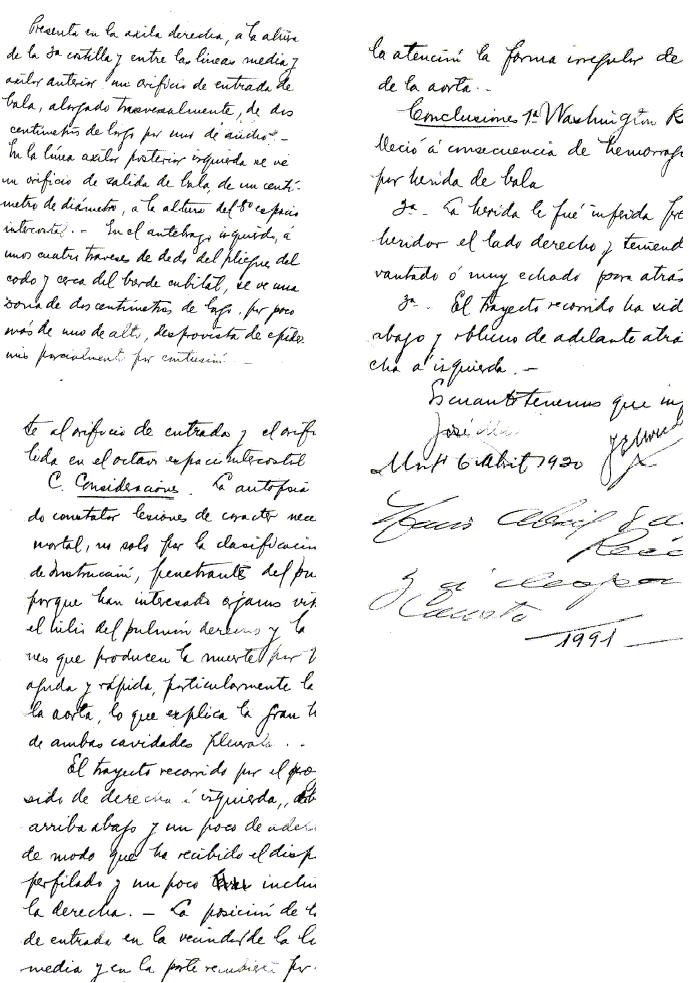 Presenta en la axila derecha, a la altura
de la 3a costilla y entre las lineas media y
axilar anterior un orificio de entrada de
bala, alargado trasversalmente, de dos
centimetros de largo por uno de ancho. -
En la linea axilar posterior izquierda se vé
un orificio de salida de bala, de un centi-
metro de diámetro, a la altura del 8o espacio
intercostal. - En el antebrazo izquierdo, á
unos cuatro traveses de dedo del pliegue del
codo y cerca del borde cubital, se ve una
zona de dos centimetros de largo, por poco
más de uno de alto, desprovista de epider
mis parcialmente por contusión. -
te al orificio de entrada y el orifi
lida en el octavo espacio intercostal
C. Consideraciones. La autopsia
do constatar lesiones de caracter nece
mortal, no solo por la clasificacion
de penetrante del pu
porque han interesado órganos vit
el hilio del pulmón derecho y la
nes que producen la muerte por
aguda y rápida, particularmente la
la aorta, lo que explica la gran
de ambas cavidades pleurales. .
El trayecto recorrido por el proy
sido de derecha á izquierda,
arriba abajo y un poco de adel
de modo que ha recibido el disp
perfilado y un poco inclin
la derecha. - La posición de
de entrada en la vecindad de la li
media y en la parte por
la atención la forma irregular de
de la aorta. -
Conclusiones 1a Washington B
lleció á consecuencia de hemorrag
por herida de bala
2a - La herida le fué inferida fre
heridor el lado derecho y teniend
vantado ó muy echado para atrás
3a - El trayecto recorrido ha sid
abajo y oblicuo de adelante atrá
cha a izquierda. -
Es cuanto tenemos que inf
José
Mont 6 Abril 1920
Abril 8 de
Reci
y á
1991